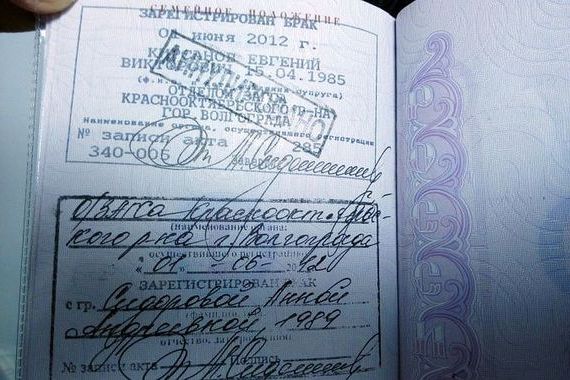 СЕМЕЙНОЕ ПОЛОЖЕНИЕ
ЗАРЕГИСТРИРОВАН БРАК
июня 2012 г.
ЕВГЕНИЙ
15.04.1985
супруга)
ОТДЕЛОМ ЗАГСА
КРАСНООКТЯБРЬСКОГО Р-НА
ГОР. ВОЛГОГРАДА
Наименование органа, осуществившего регистрацию
№ записи акта 285
340-006
ОЗАГСа Красноокт.
(наименование органа,
кого р-на г. Волгограда
осуществившего регистрацию)
"01" 06
ЗАРЕГИСТРИРОВАН БРАК
с гр. Сидоровой Анной
Андреевной, 1989
№ записи акта Подпись